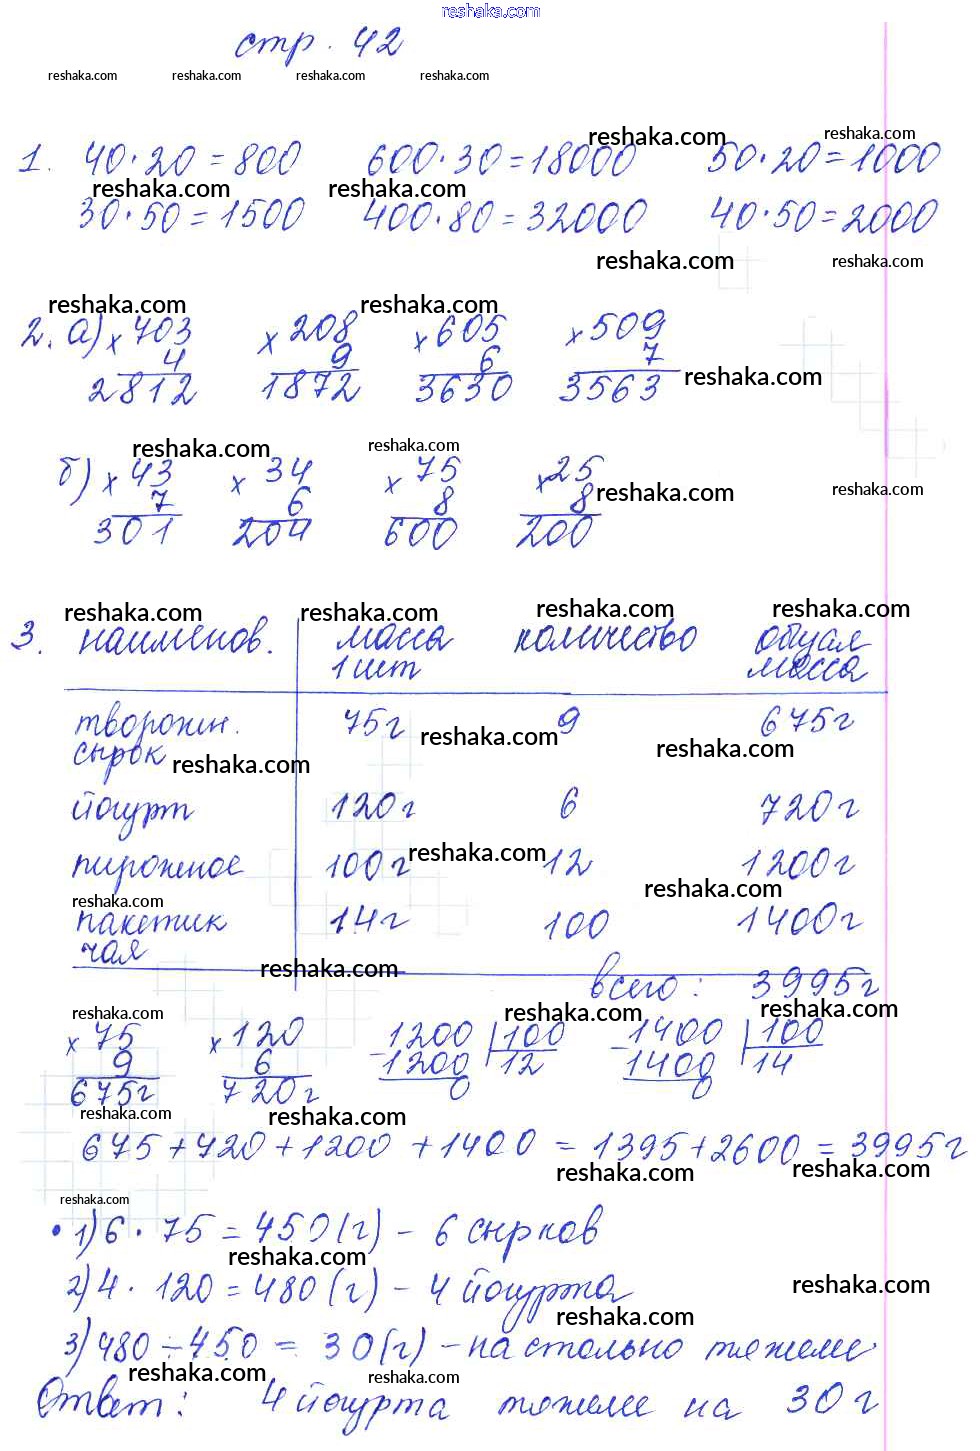 reshaka.com
стр. 42
reshaka.com reshaka.com reshaka.com reshaka.com
reshaka.com reshaka.com
1. 40·20=800 600·30=18000 50·20=1000
reshaka.com reshaka.com
30·50=1500 400·80=32000 40·50=2000
reshaka.com reshaka.com
reshaka.com reshaka.com
2. а) x 703 x 208 x 605 x 509
4 9 6 7
2812 1872 3630 3563 reshaka.com
reshaka.com reshaka.com
б) x 43 x 34 x 75 x 25
7 6 8 8 reshaka.com reshaka.com
301 204 600 200
reshaka.com reshaka.com reshaka.com reshaka.com
3. наименов. масса количество общая
1 шт масса
творожн. 75г 9 675г
reshaka.com reshaka.com
сырок reshaka.com
йогурт 120г 6 720г
пирожное 100г reshaka.com 12 1200г
reshaka.com reshaka.com
пакетик 14г 100 1400г
чая
reshaka.com
всего: 3995г
reshaka.com reshaka.com reshaka.com
x 75 x 120 - 1200 | 100 - 1400 | 100
9 6 1200 12 1400 14
675г 720г 0 0
reshaka.com reshaka.com
675+720+1200+1400=1395+2600=3995г
reshaka.com reshaka.com
reshaka.com
• 1) 6·75=450(г) - 6 сырков
reshaka.com
2) 4·120=480(г) - 4 йогурта
reshaka.com
reshaka.com
3) 480÷450=30(г) - на столько тяжелее
reshaka.com reshaka.com
Ответ: 4 йогурта тяжелее на 30г